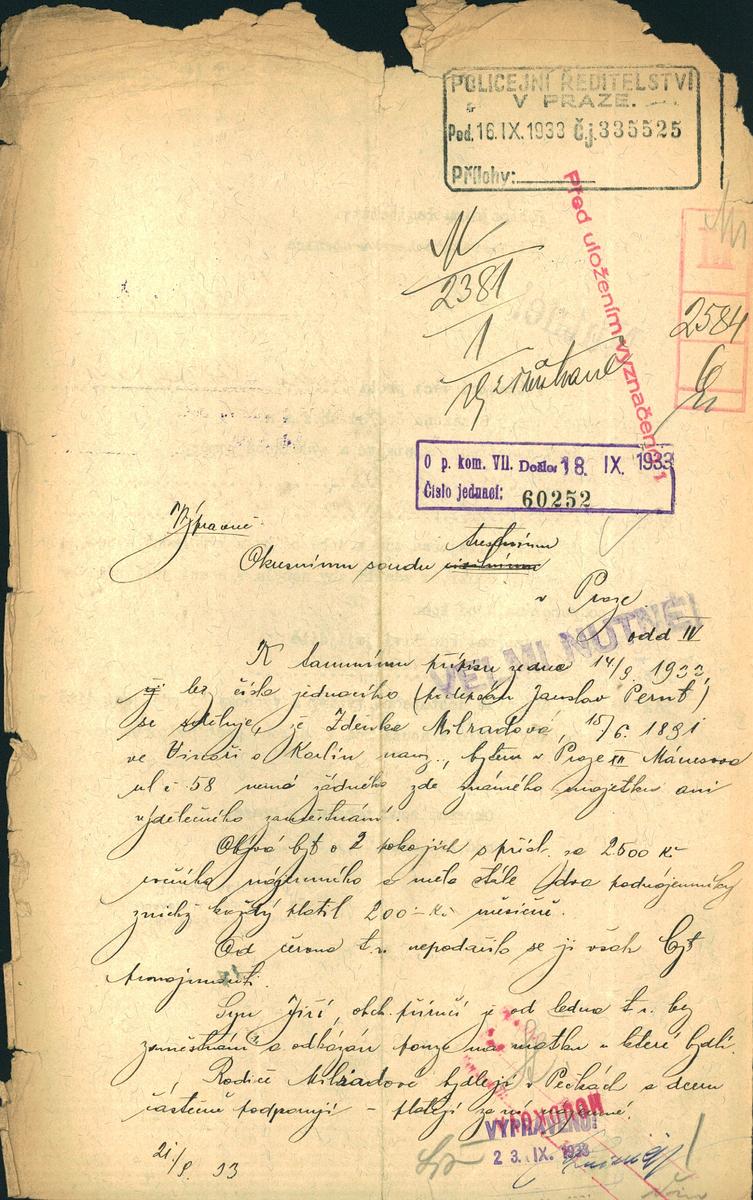 POLICEJNÍ ŘEDITELSTVÍ
V PRAZE.
Pod. 16. IX. 1933 č.j. 335525
Přílohy:
Před uložením vyznačení
2381
1
III
2584
O p. kom. VII. Došlo: 18. IX. 1933
Číslo jednací: 60252
Výpravně
trestnímu
Okresnímu soudu civilnímu
v Praze
odd IV
VELMI NUTNÉ!
K tamnímu přípisu ze dne 14/9. 1933,
bez čísla jednacího (podepsán Jaroslav Pernt)
se sděluje, že Zdenka Milradová, 15/6. 1891
ve Vinoři o Karlín nar., bytem v Praze XII Mánesova
ul č 58 nemá žádného zde známého majetku ani
výdělečného zaměstnání.
Obývá byt o 2 pokojích s přísl. za 2500 Kč
ročního nájemného a měla stále dva podnájemníky
z nichž každý platil 200 Kč měsíčně.
Od června t.r. nepodařilo se jí však byt
pronajmouti.
Syn Jiří, obch. příručí je od ledna t.r. bez
zaměstnání a odkázán pouze na matku u které bydlí.
Rodiče Milradové bydlejí v Pečkách a dceru
částečně podporují – platejí za ní nájemné.
VYPRAVENO!
23. IX. 1933
21/9. 33